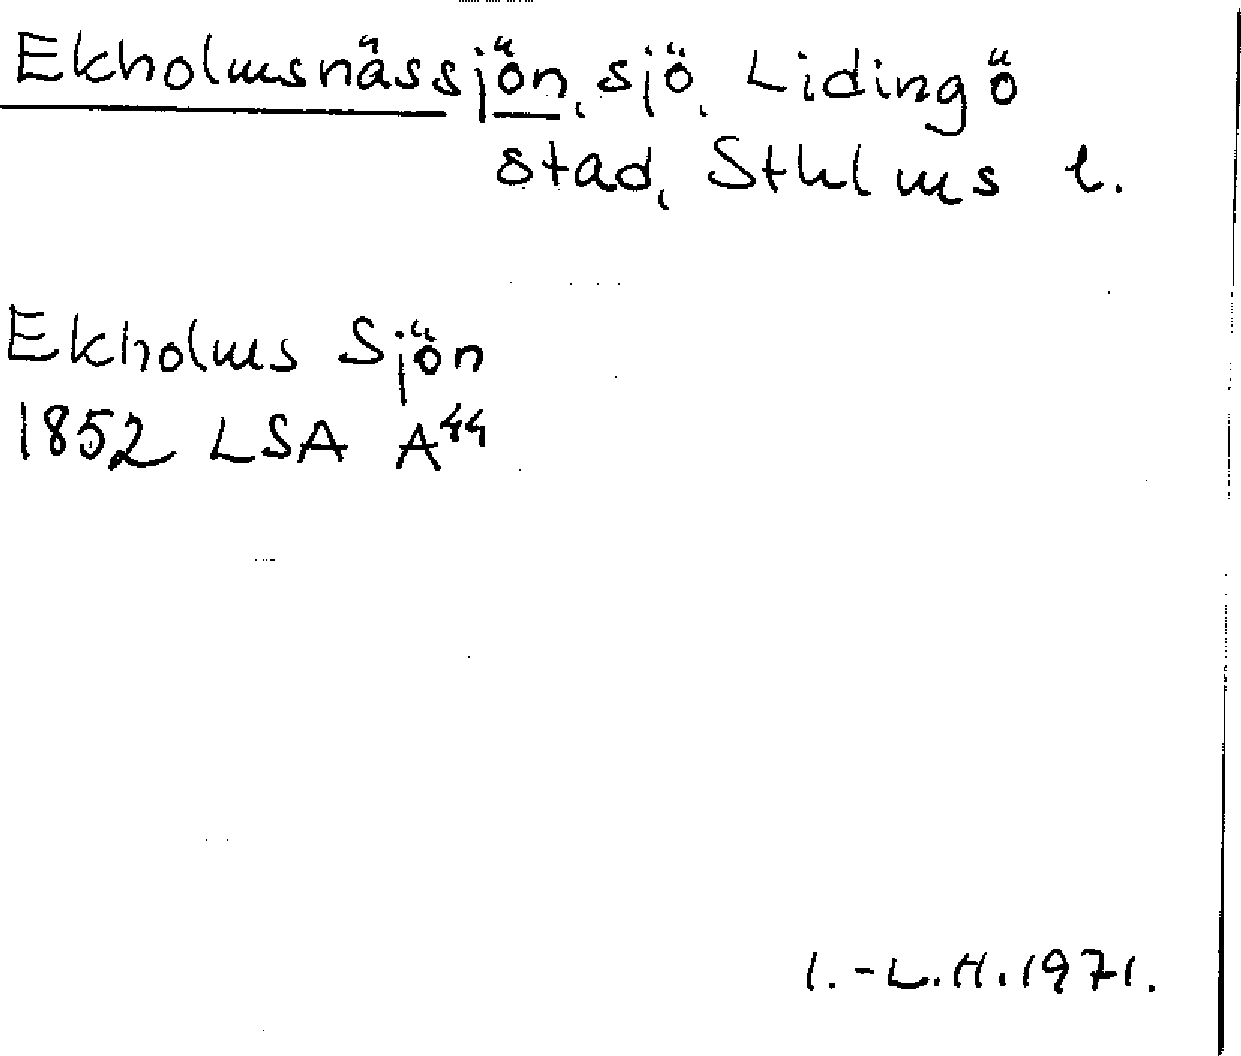 Ekholmsnässjön, sjö, Lidingö
stad, Sthlms l.
Ekholms Sjön
1852 LSA A44
I.-L.H. 1971.